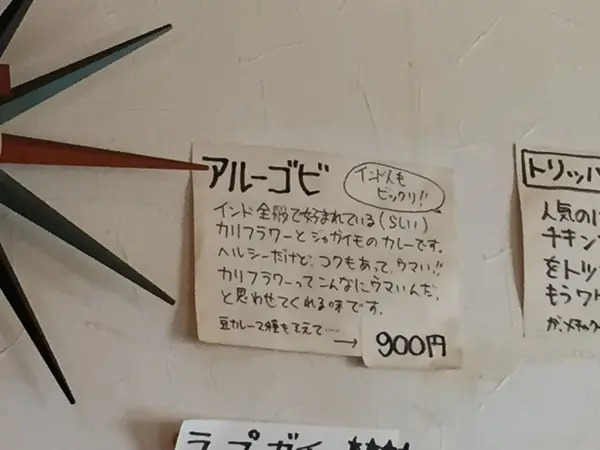 アルーゴビ
インド人も
ビックリ!!
インド全般で好まれている(らしい)
カリフラワーとジャガイモのカレーです。
ヘルシーだけど、コクもあって、ウマい!!
カリフラワーってこんなにウマいんだ、
と思わせてくれる味です。
豆カレーで
→ 900円
トリッパ
人気の
チキン
をトッ
もうワ
ラプガイ